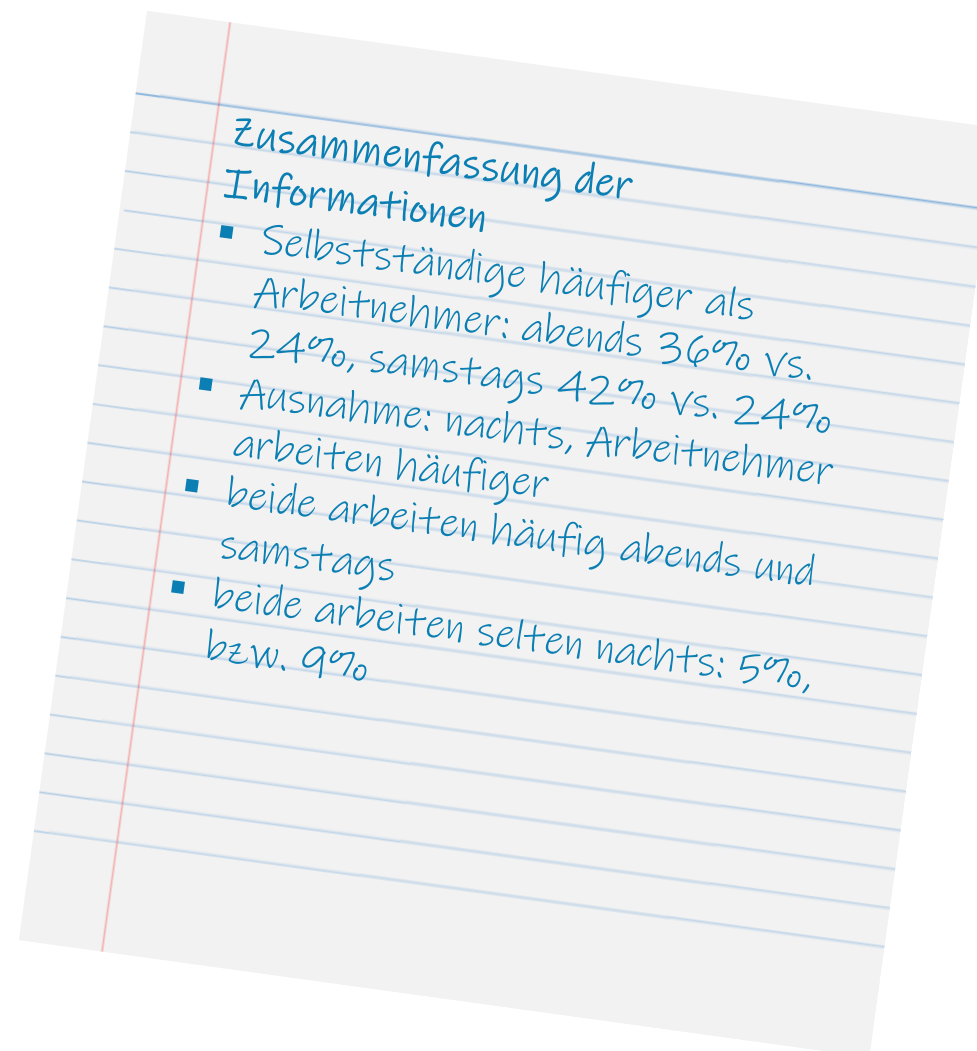 Zusammenfassung der
Informationen
▪ Selbstständige häufiger als
Arbeitnehmer: abends 36% vs.
24%, samstags 42% vs. 24%
▪ Ausnahme: nachts, Arbeitnehmer
arbeiten häufiger
▪ beide arbeiten häufig abends und
samstags
▪ beide arbeiten selten nachts: 5%,
bzw. 9%